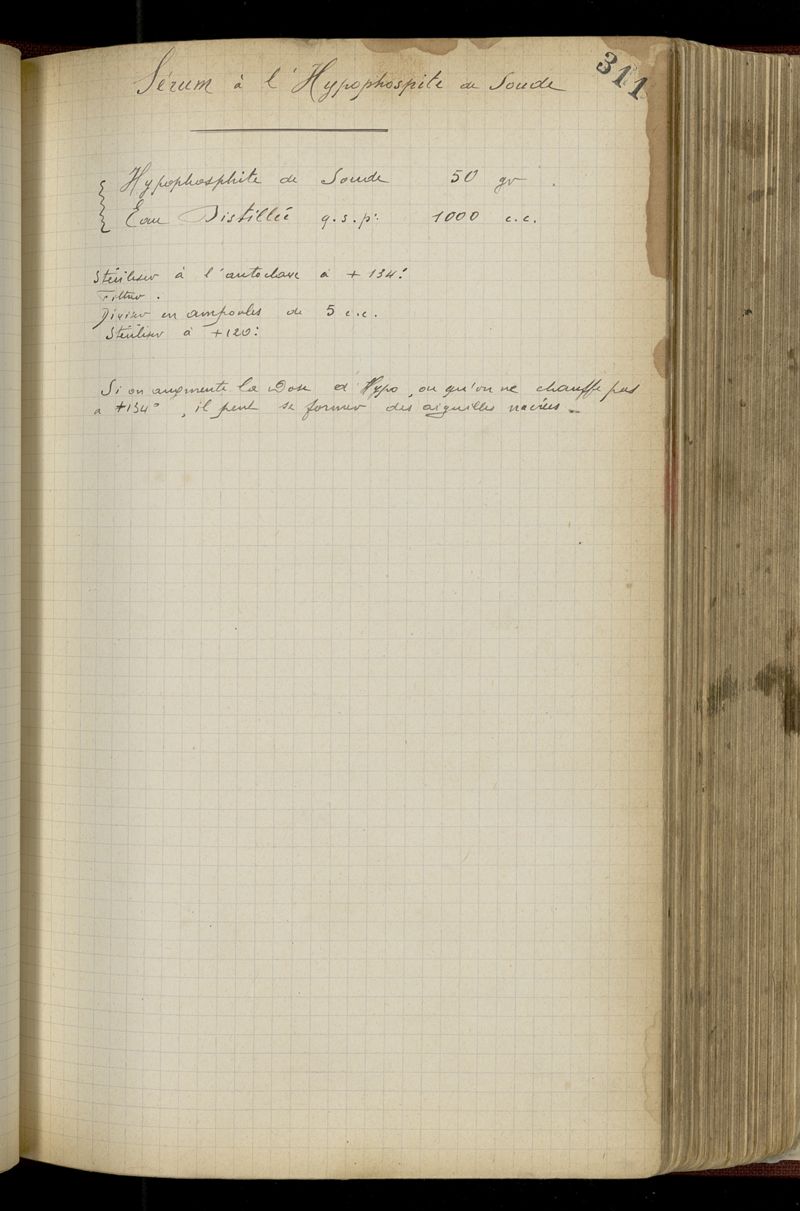 311
Sérum à l'Hypophospite de Soude
Hypophosphite de Soude 50 gr.
Eau Distillée q.s.p. 1000 c.c.
Stériliser à l'autoclave à + 134°
Filtrer.
Diviser en ampoules de 5 c.c.
Stériliser à +120°
Si on augmente la Dose d'Hypo, ou qu'on ne chauffe pas
à +134°, il peut se former des aiguilles nacrées.